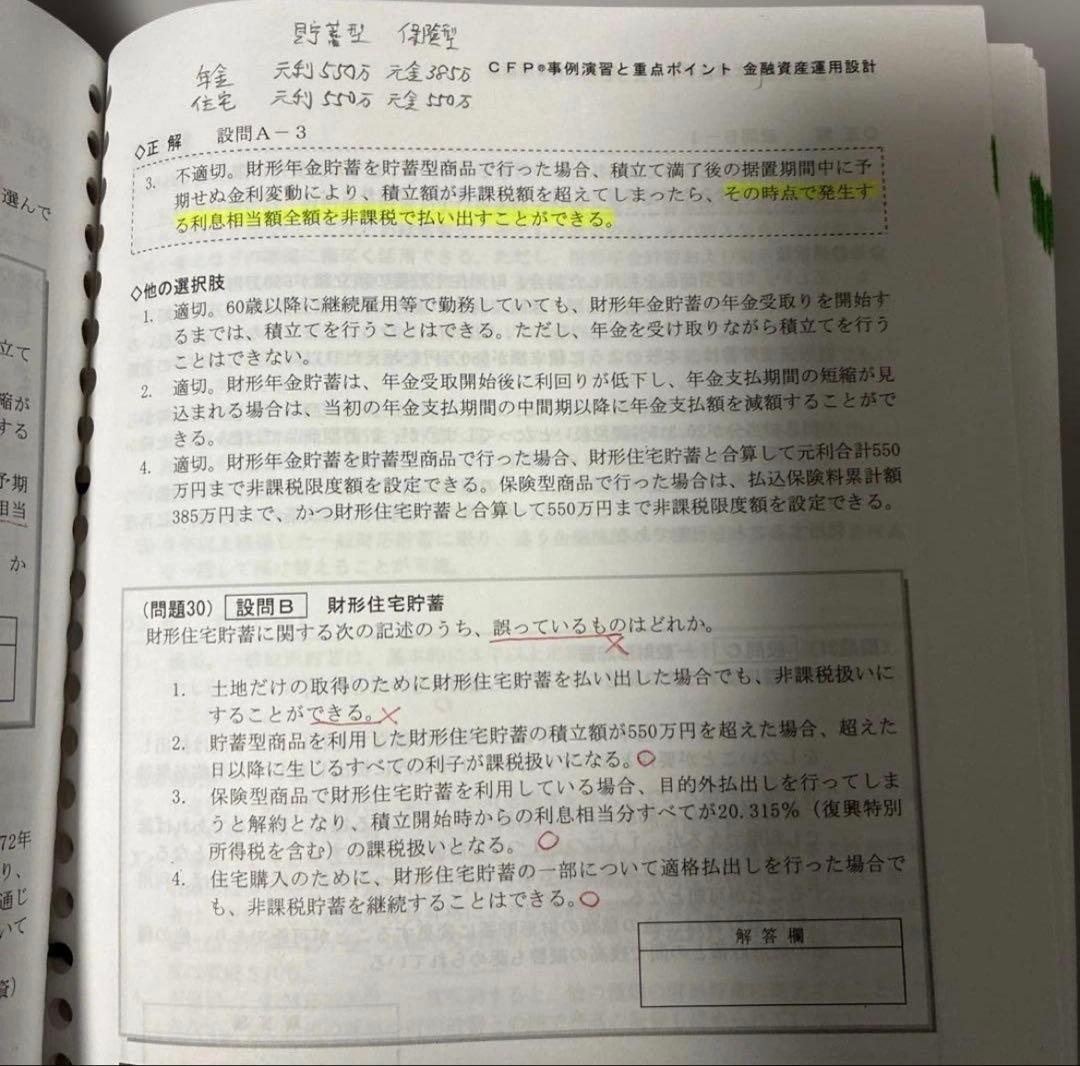 貯蓄型 保険型
年金 元利550万 元金385万
住宅 元利550万 元金550万
CFP®事例演習と重点ポイント 金融資産運用設計
◇正 解 設問A－3
3. 不適切。財形年金貯蓄を貯蓄型商品で行った場合、積立て満了後の据置期間中に予
期せぬ金利変動により、積立額が非課税額を超えてしまったら、その時点で発生す
る利息相当額全額を非課税で払い出すことができる。
◇他の選択肢
1. 適切。60歳以降に継続雇用等で勤務していても、財形年金貯蓄の年金受取りを開始す
るまでは、積立てを行うことはできる。ただし、年金を受け取りながら積立てを行う
ことはできない。
2. 適切。財形年金貯蓄は、年金受取開始後に利回りが低下し、年金支払期間の短縮が見
込まれる場合は、当初の年金支払期間の中間期以降に年金支払額を減額することがで
きる。
4. 適切。財形年金貯蓄を貯蓄型商品で行った場合、財形住宅貯蓄と合算して元利合計550
万円まで非課税限度額を設定できる。保険型商品で行った場合は、払込保険料累計額
385万円まで、かつ財形住宅貯蓄と合算して550万円まで非課税限度額を設定できる。
(問題30) 設問B 財形住宅貯蓄
財形住宅貯蓄に関する次の記述のうち、誤っているものはどれか。
1. 土地だけの取得のために財形住宅貯蓄を払い出した場合でも、非課税扱いに
することができる。
2. 貯蓄型商品を利用した財形住宅貯蓄の積立額が550万円を超えた場合、超えた
日以降に生じるすべての利子が課税扱いになる。
3. 保険型商品で財形住宅貯蓄を利用している場合、目的外払出しを行ってしま
うと解約となり、積立開始時からの利息相当分すべてが20.315%（復興特別
所得税を含む）の課税扱いとなる。
4. 住宅購入のために、財形住宅貯蓄の一部について適格払出しを行った場合で
も、非課税貯蓄を継続することはできる。
解 答 欄
選んで
立て
縮が
する
予期
相当
か
72年
り、
通じ
いて
資)